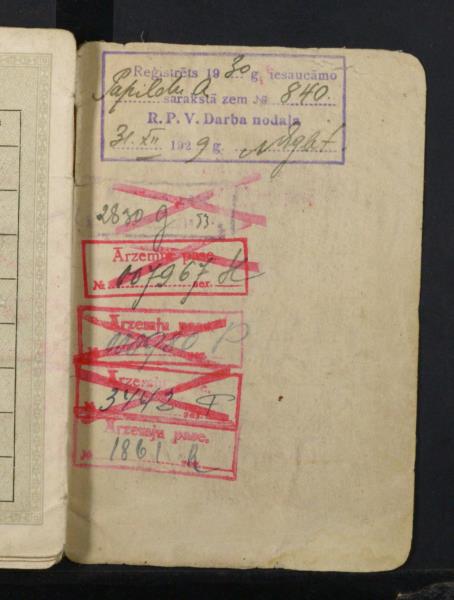 Reģistrēts 1930 g. iesaucāmo
Papildu A
sarakstā zem № 840.
R. P. V. Darba nodaļa
31. XII 1929 g.
2830 g 53.
Ārzemju pase
№ 007967 ser. H
Ārzemju pase
000980 P
Ārzemju pase.
№ 3442 ser. P
Ārzemju pase.
№ 1861 ser.